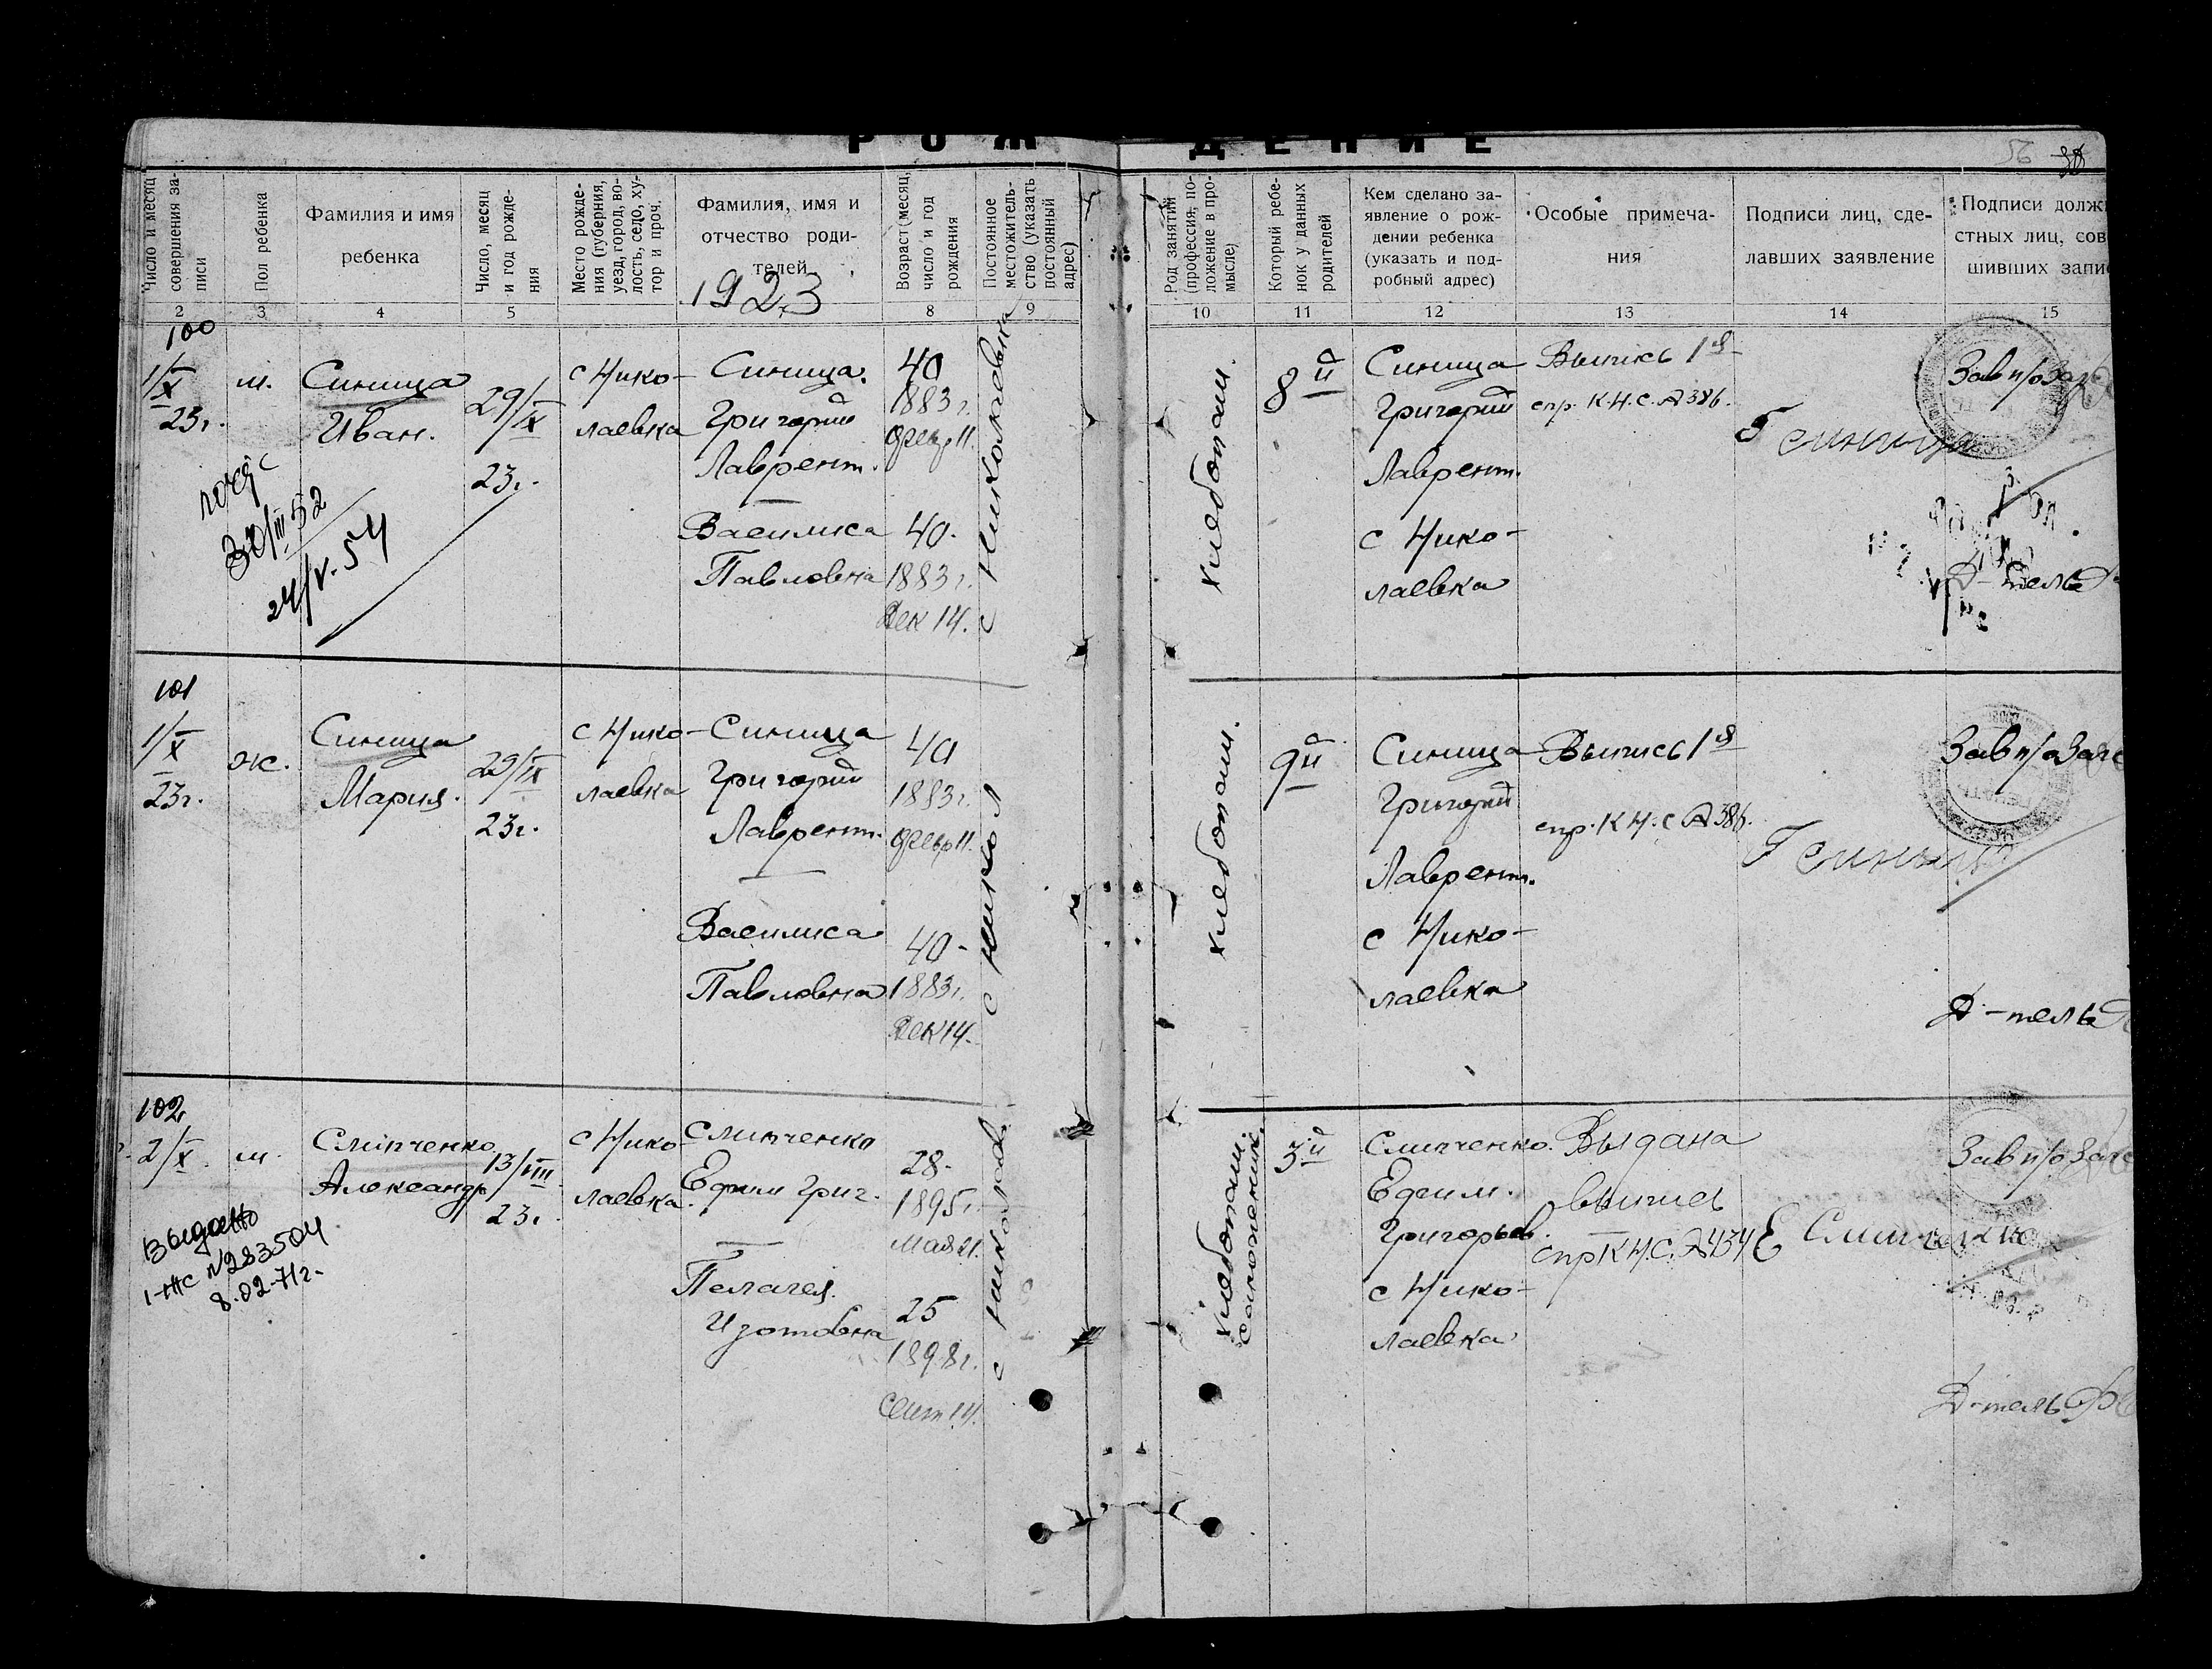 РОЖДЕНИЕ
56
Число и месяц совершения записи
Пол ребенка
Фамилия и имя ребенка
Число, месяц и год рождения
Место рождения (губерния, уезд, город, волость, седо, хутор и проч.
Фамилия, имя и отчество родителей
1923
Возраст (месяц, число и год рождения
Постоянное местожительство (указать постоянный адрес)
Род занятий (профессия, положение в промысле)
Который ребенок у данных родителей
Кем сделано заявление о рождении ребенка (указать и подробный адрес)
Особые примечания
Подписи лиц, сделавших заявление
Подписи долж
стных лиц, сов
шивших запи
2 3 4 5 8 9 10 11 12 13 14 15
100
1/X
23г.
м.
Синица
Иван.
29/IX
23г.
с Нико-
лаевка
Синица
Григорий
Лаврент.
Василиса
Павловна
40
1883г.
февр 11.
40.
1883г.
Дек 14.
с Николаевка
хлебопаш.
8й
Синица
Григорий
Лаврент.
с Нико-
лаевка
Выпись 1я
спр. К.Н.С. А386.
Г Синица
Зав п/о Заг
Д-тель
30/III 52
24/V-54
101
1/X
23г.
ж.
Синица
Мария.
29/IX
23г.
с Нико-
лаевка
Синица
Григорий
Лаврент.
Василиса
Павловна
40
1883г.
февр 11.
40-
1883г.
Дек 14.
с Никол
хлебопаш.
9й
Синица
Григорий
Лаврент.
с Нико-
лаевка
Выпись 1я
спр. К.Н.С А386.
Г Синица
Зав п/о Заг
Д-тель
102
2/X
м.
Слипченко
Александр
13/VIII
23г.
с Нико-
лаевка.
Слипченко
Ефим Григ.
Пелагея
Изотовна
28-
1895г.
Мая 21.
25
1898г.
Сент 14.
с Николаев.
хлебопаш.
3й
Слипченко.
Ефим.
Григорьев.
с Нико-
лаевка
Выдана
выпись
спр К.Н.С. А434
Е Слипченко
Зав п/о Заг
Д-тель
выдано
I-ЖС №283504
8.02-71г.